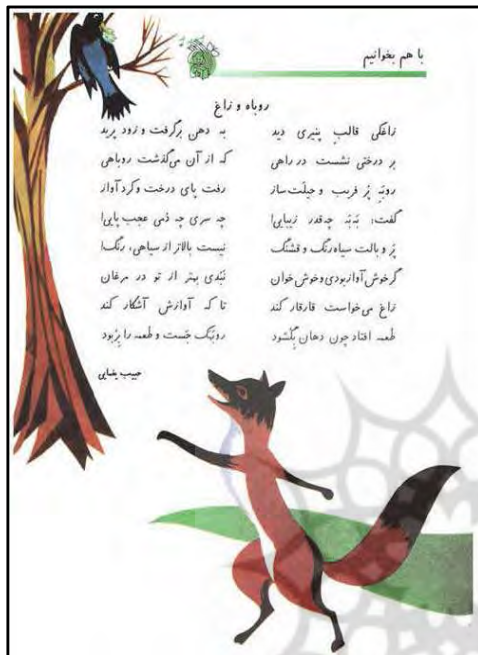 با هم بخوانیم
روباه و زاغ
زاغکی قالبِ پنیری دید به دهن برگرفت و زود پرید
بر درختی نشست در راهی که از آن می‌گذشت روباهی
روبَهِ پُر فریب و حیلت‌ساز رفت پای درخت و کرد آواز
گفت: بَه‌بَه چه‌قدر زیبایی! چه سری چه دُمی عجب پایی!
پَر و بالت سیاه‌رنگ و قشنگ نیست بالاتر از سیاهی، رنگ!
گر خوش‌آواز بودی و خوش‌خوان نَبُدی بهتر از تو در مرغان
زاغ می‌خواست قارقار کند تا که آوازش آشکار کند
طعمه افتاد چون دهان بگشود روبَهَک جَست و طعمه را برُبود
حبیب یغمایی